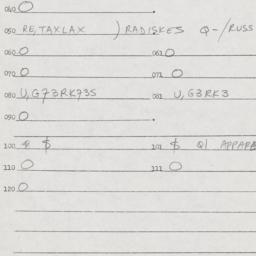 040 O
050 RE, TAXLAX ) RADISKES Q-/RUSS
060 O 061 O
070 O 071 O
080 U, G73RK73S 081 U, G3RK3
090 O
100 $ 101 $ Q1 APPARE
110 O 111 O
120 O